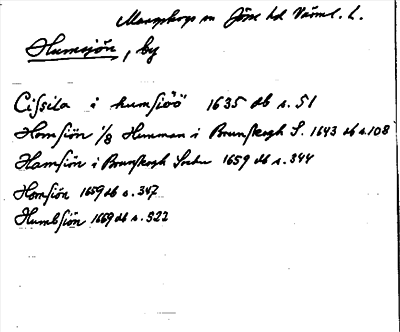 Mangskogs sn Jösse hd Värml. l.
Humsjön, by
Cissila i humsiöö 1635 db s. 51
Homsiön 1/8 Hemman i Brunskogh S. 1643 db s. 108
Hamsiön i Brunskogh Sochn 1659 db s. 344
Homsiön 1659 db s. 347
Humbsiön 1669 db s. 322